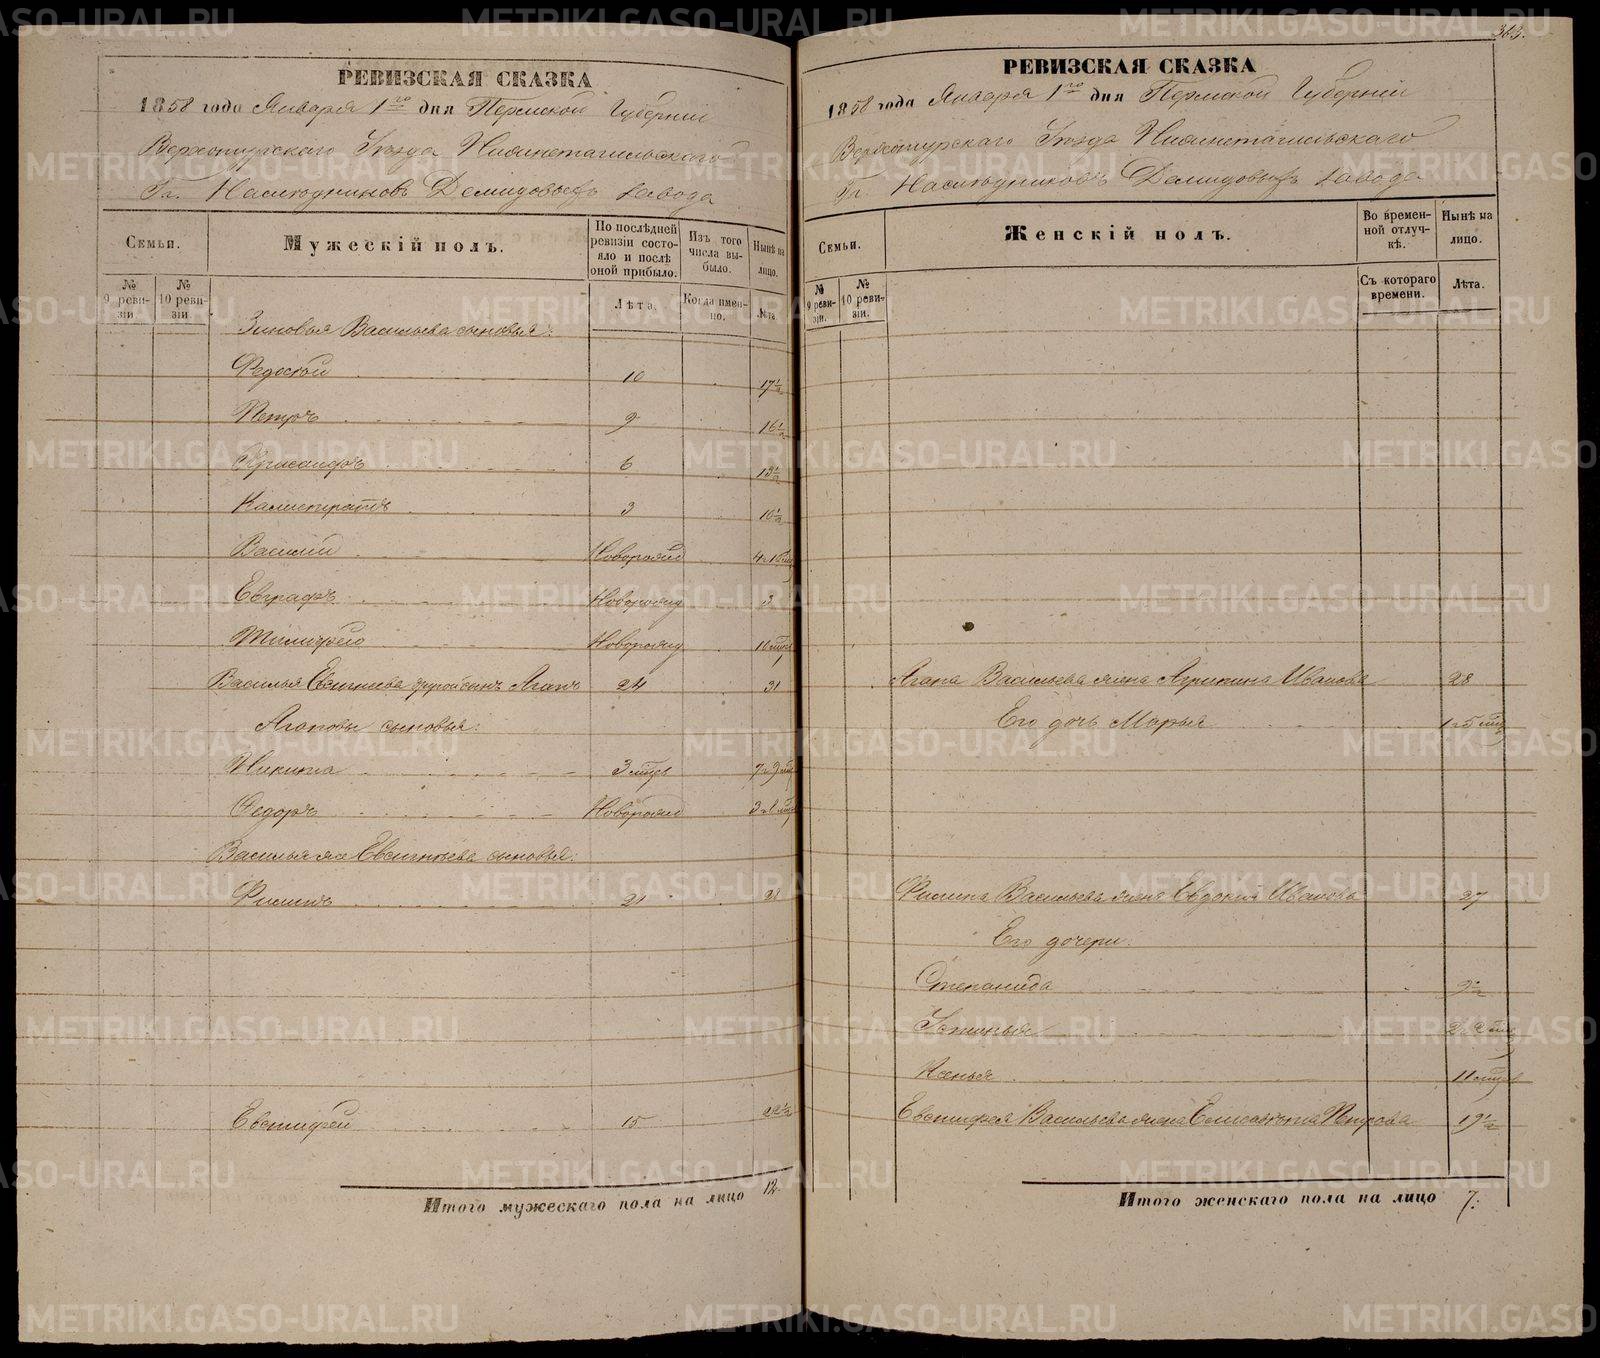 РЕВИЗСКАЯ СКАЗКА
1858 года Января 1го дня Пермской Губерніи
Верхотурскаго Уѣзда Нижнетагильскаго
Гг. Наслѣдниковъ Демидовыхъ завода
Семьи.
Мужескій полъ.
По послѣдней ревизіи состояло и послѣ оной прибыло.
Изъ того числа выбыло.
Нынѣ на лицо.
№ 9 ревизіи
№ 10 ревизіи
Лѣта.
Когда именно.
Лѣта
Зиновья Васильева сыновья:
Федосѣй 10 17½
Петръ 9 16½
6 13½
Калистратъ 3 10½
Василій Новорожд
Евграфъ Новорожд 3
Тимофей Новорожд 10 мцев
Василья Евсигнѣева другой сынъ Агапъ 24 31
Агаповы сыновья:
Никита 3 мцев 7 л 9 мц
Федоръ Новорожд
Василья же Евсигнѣева сыновья:
Филипъ 21 28
Евстифей 15 22½
Итого мужескаго пола на лицо 12.
363.
РЕВИЗСКАЯ СКАЗКА
1858 года Января 1го дня Пермской Губерніи
Верхотурскаго Уѣзда Нижнетагильскаго
Гг. Наслѣдниковъ Демидовыхъ завода
Семьи.
Женскій полъ.
Во временной отлучкѣ.
Нынѣ на лицо.
№ 9 ревизіи.
№ 10 ревизіи.
Съ котораго времени.
Лѣта.
Агапа Васильева жена Агрипина Иванова 28
Его дочь Марья 1 л 5 мц
Филипа Васильева жена Евдокія Иванова 27
Его дочери:
Степанида 9½
Устинья 2 л 2 мц
Ксенья 11 мцев
Евстифея Васильева жена Елисавета Петрова 19½
Итого женскаго пола на лицо 7:
METRIKI.GASO-URAL.RU